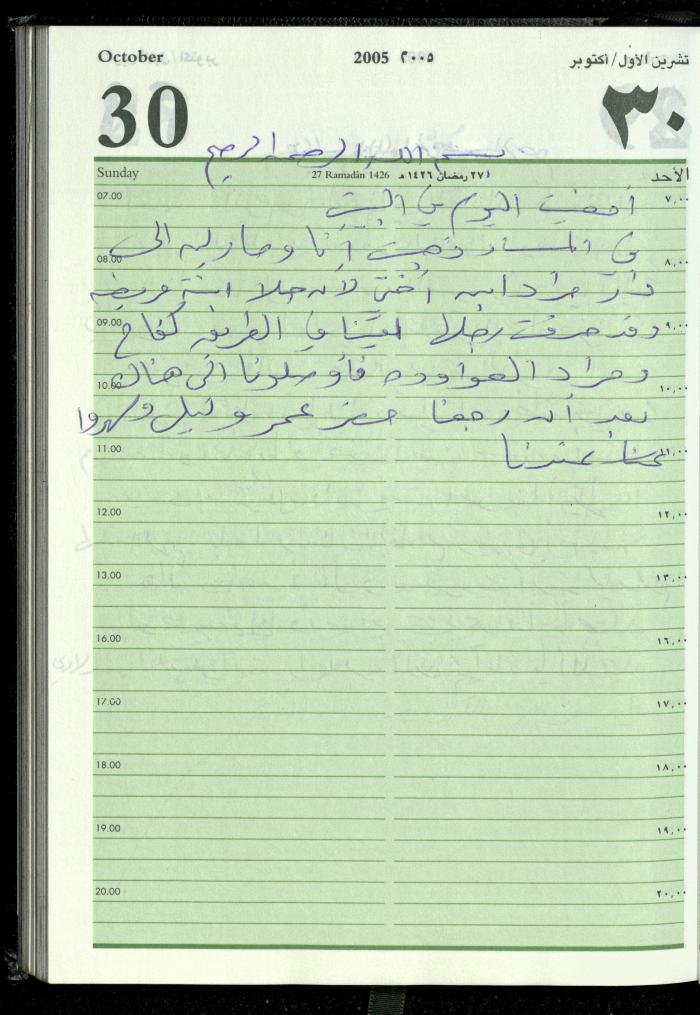 October 2005 ٢٠٠٥ تشرين الأول/أكتوبر
30 ٣٠
بسم الله الرحمن الرحيم
Sunday 27 Ramadān 1426 ٢٧ رمضان ١٤٢٦ هـ الأحد
07.00 ٧,٠٠
أمضيت اليوم في البيت
في المساء ذهبت أنا و إلى
08.00 ٨,٠٠
دار مراد ابن أختي لأن مريضه
09.00 ٩,٠٠
وقد رجلها في الطريق كفاح
ومراد العواودة فأوصلونا الى هناك
10.00 ١٠,٠٠
بعد أن رجعنا حضر عمر و وسهروا
11.00 ١١,٠٠
عندنا
12.00 ١٢,٠٠
13.00 ١٣,٠٠
16.00 ١٦,٠٠
17.00 ١٧,٠٠
18.00 ١٨,٠٠
19.00 ١٩,٠٠
20.00 ٢٠,٠٠